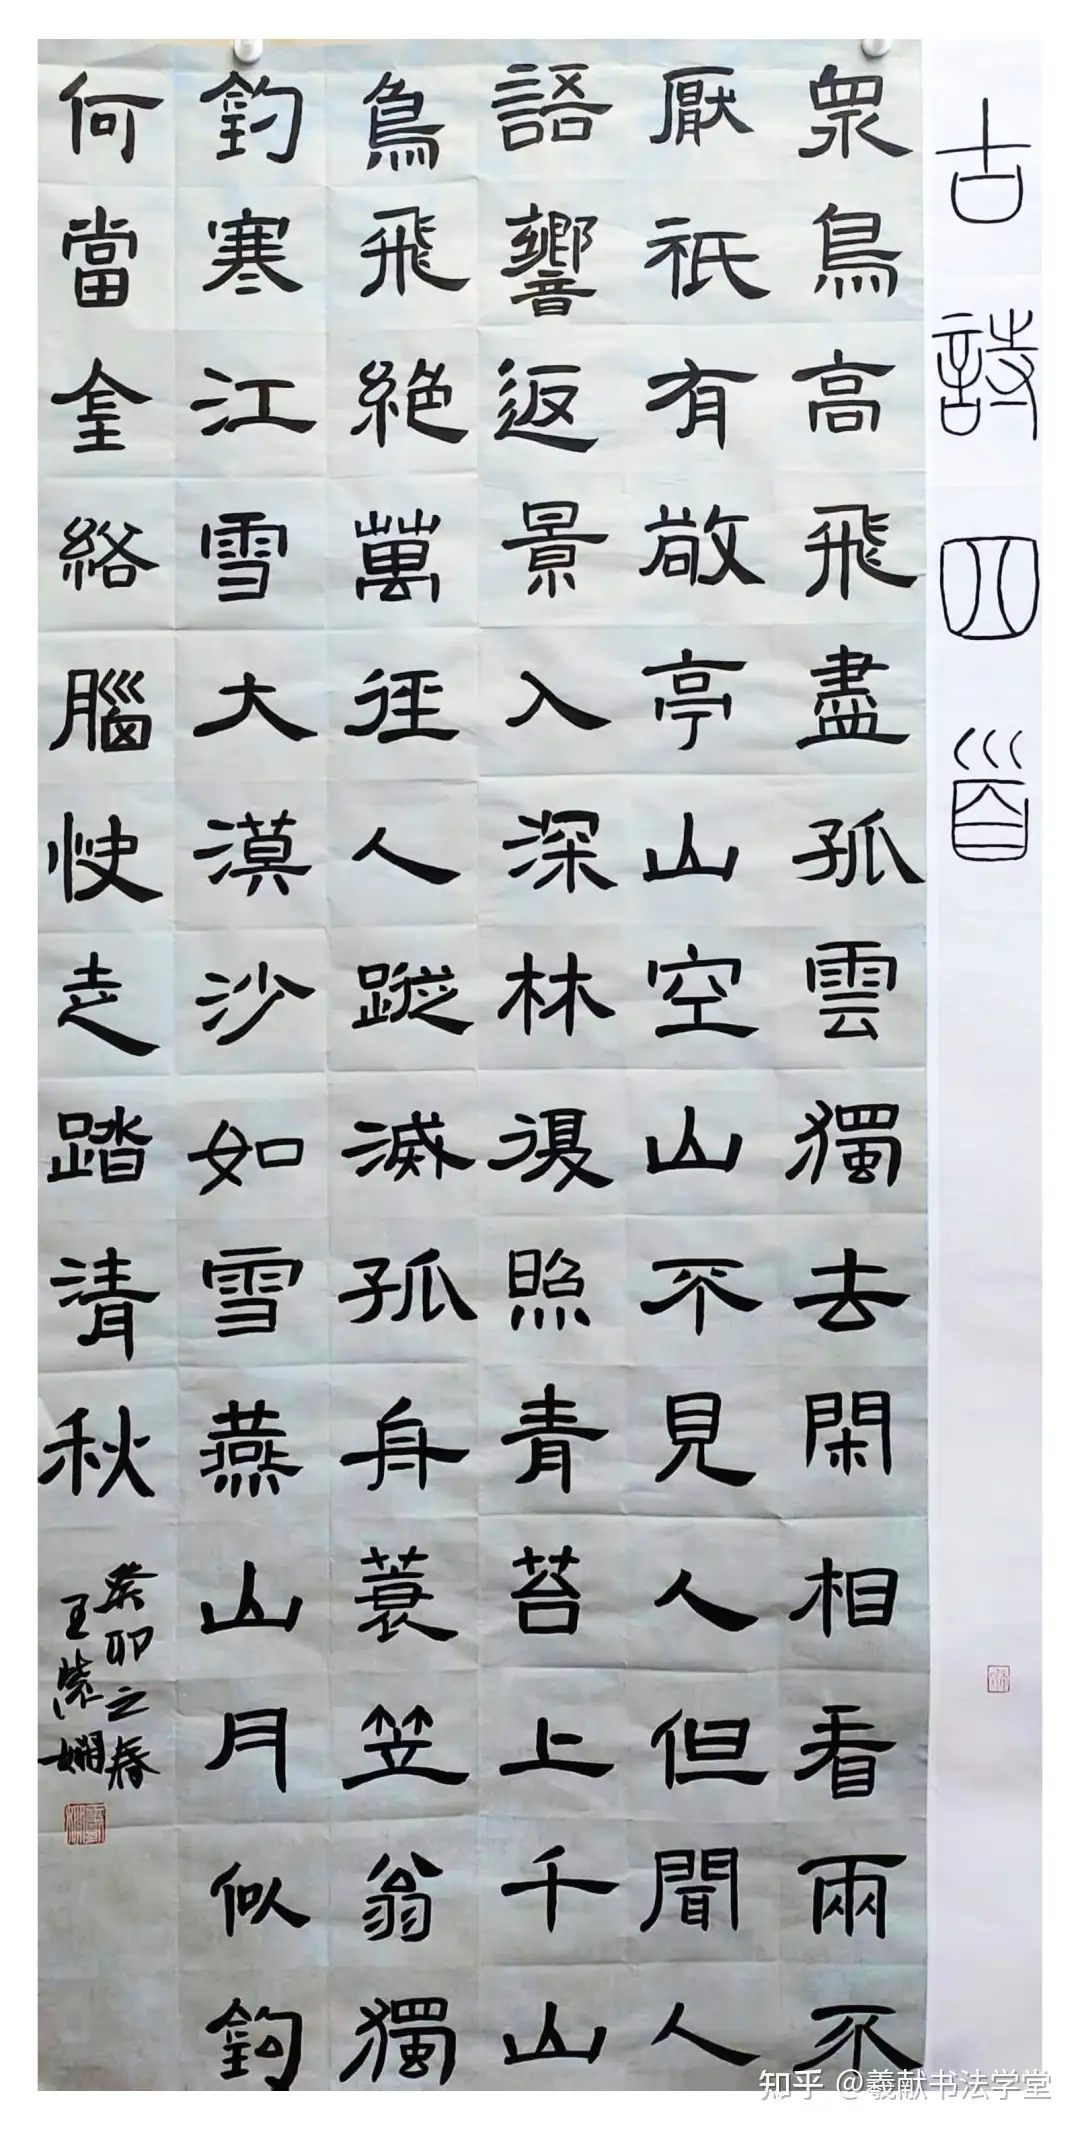 古詩四首
眾鳥高飛盡孤雲獨去閑相看兩不
厭祇有敬亭山空山不見人但聞人
語響返景入深林復照青苔上千山
鳥飛絕萬徑人蹤滅孤舟蓑笠翁獨
釣寒江雪大漠沙如雪燕山月似鉤
何當金絡腦快走踏清秋
癸卯之春
王紫嫻
知乎 @羲献书法学堂